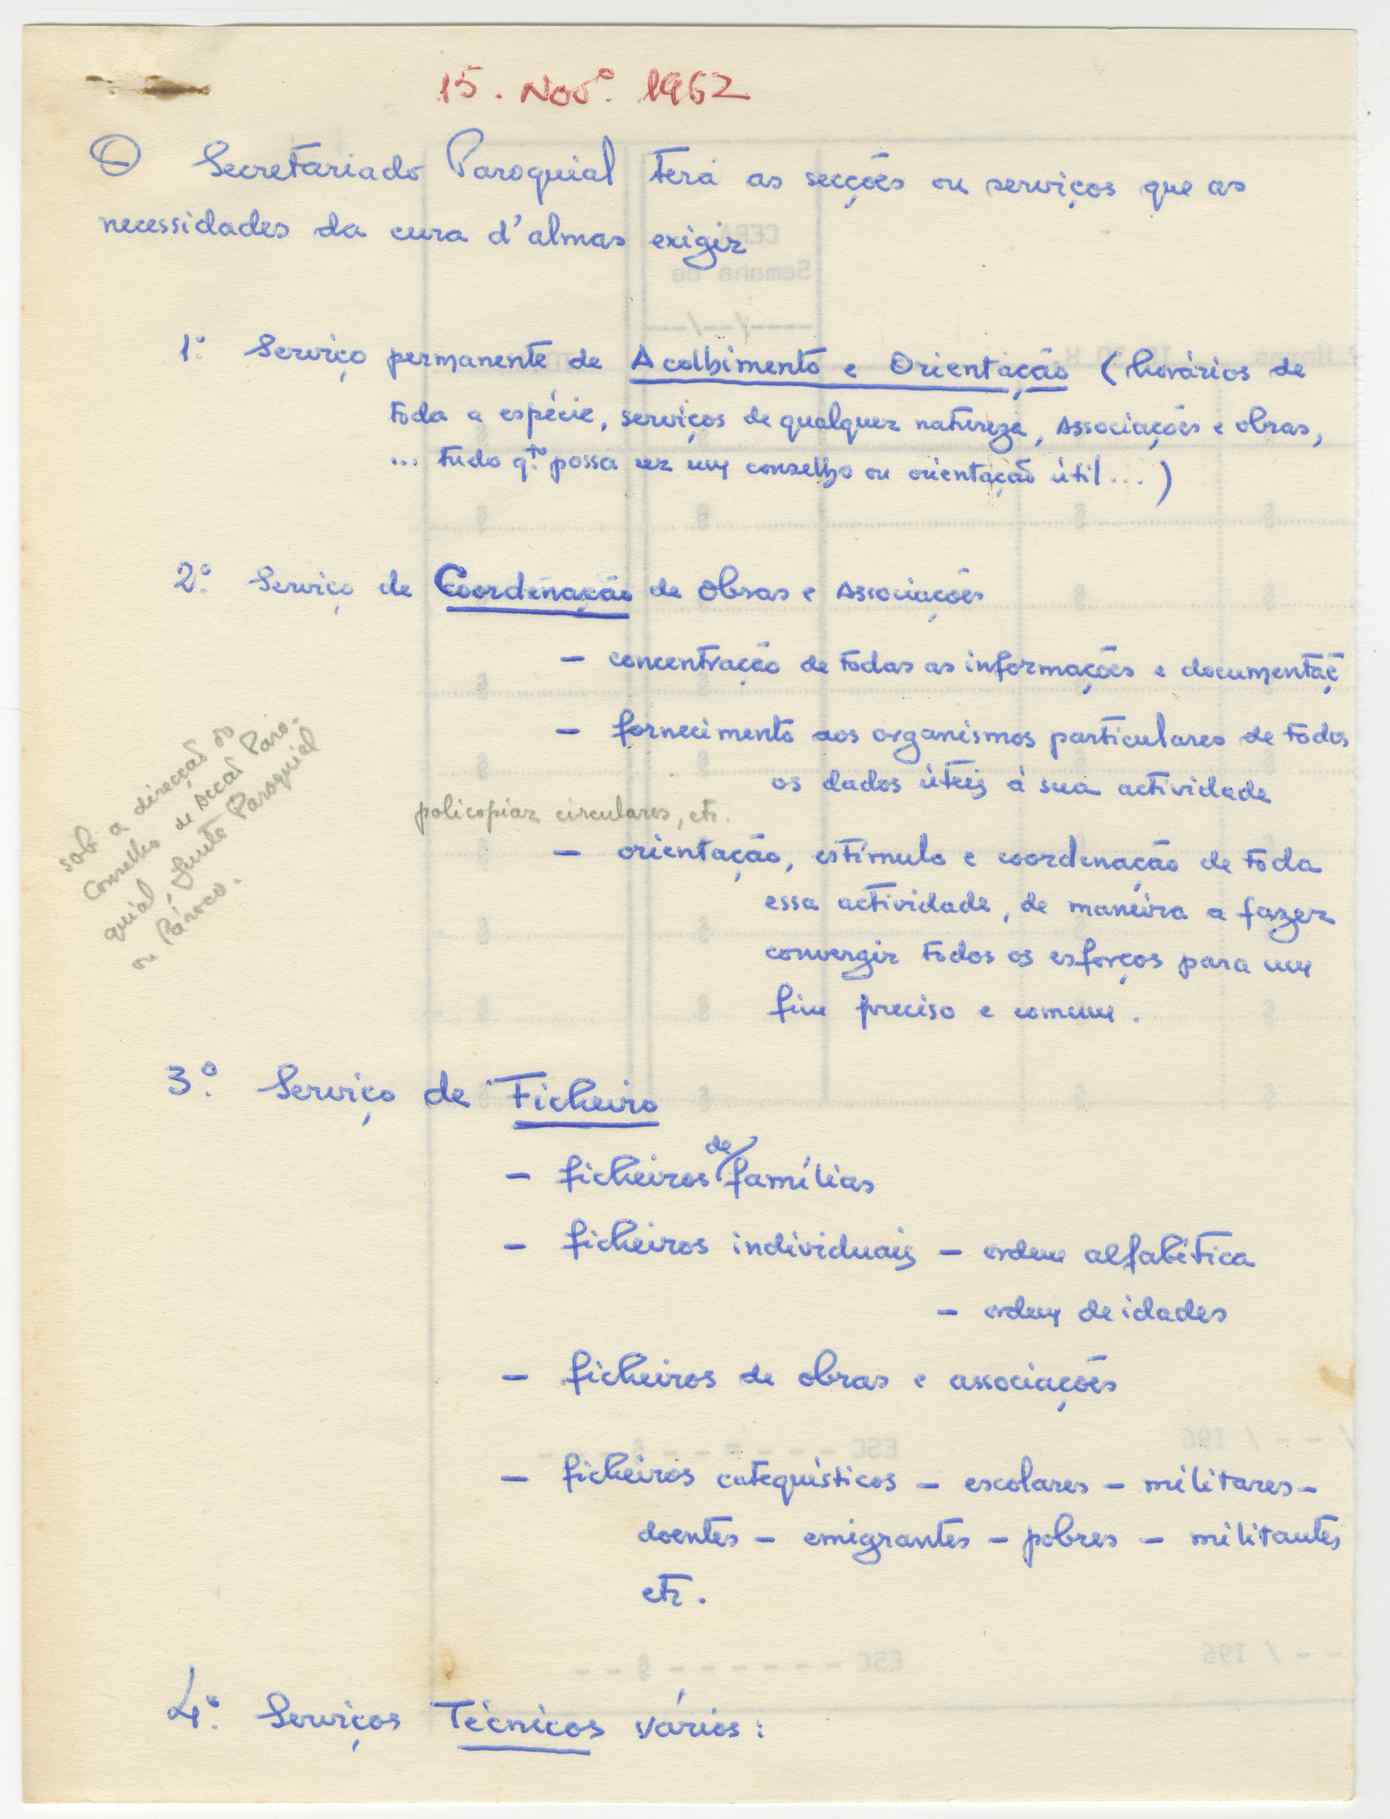 15. Novº. 1962
O Secretariado Paroquial terá as secções ou serviços que as
necessidades da cura d'almas exigir
1º. Serviço permanente de Acolhimento e Orientação (horários de
toda a espécie, serviços de qualquer natureza, Associações e obras,
... tudo q.to possa ser um conselho ou orientação útil...)
2º. Serviço de Coordenação de Obras e Associações
– concentração de todas as informações e documentaç
– fornecimento aos organismos particulares de todos
os dados úteis à sua actividade
policopiar circulares, etc.
– orientação, estímulo e coordenação de toda
essa actividade, de maneira a fazer
convergir todos os esforços para um
fim preciso e comum.
sob a direcção do
Conselho de Acção Paro-
quial, Junta Paroquial
ou Pároco.
3º. Serviço de Ficheiro
– ficheiros de famílias
– ficheiros individuais – ordem alfabética
– ordem de idades
– ficheiros de obras e associações
– ficheiros catequísticos – escolares – militares –
doentes – emigrantes – pobres – militantes
etc.
4º. Serviços Técnicos vários:
CERA
Semana de
ESC
/ 196
ESC
/ 196